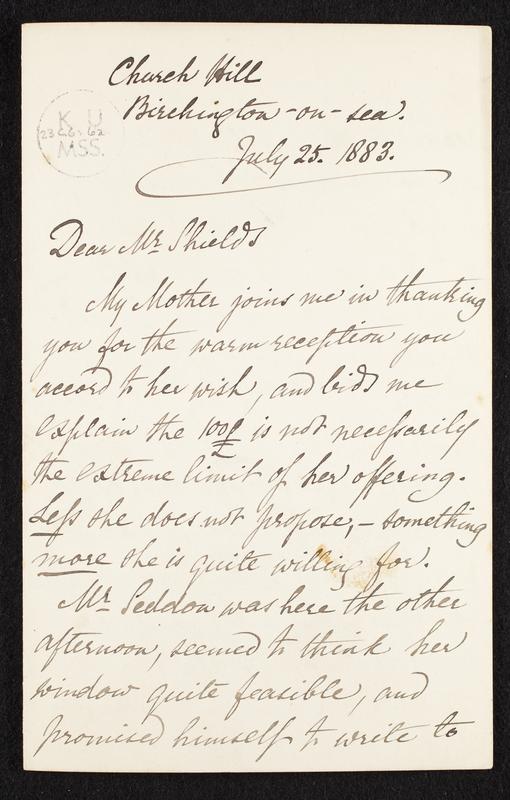 Church Hill
Birchington-on-sea.
July 25. 1883.
K U
23 AG. 62
MSS.
Dear Mr. Shields
My Mother joins me in thanking
you for the warm reception you
accord to her wish, and bids me
explain the 100£ is not necessarily
the extreme limit of her offering.
Less she does not propose, – something
more she is quite willing for.
Mr. Seddon was here the other
afternoon, seemed to think her
window quite feasible, and
promised himself to write to